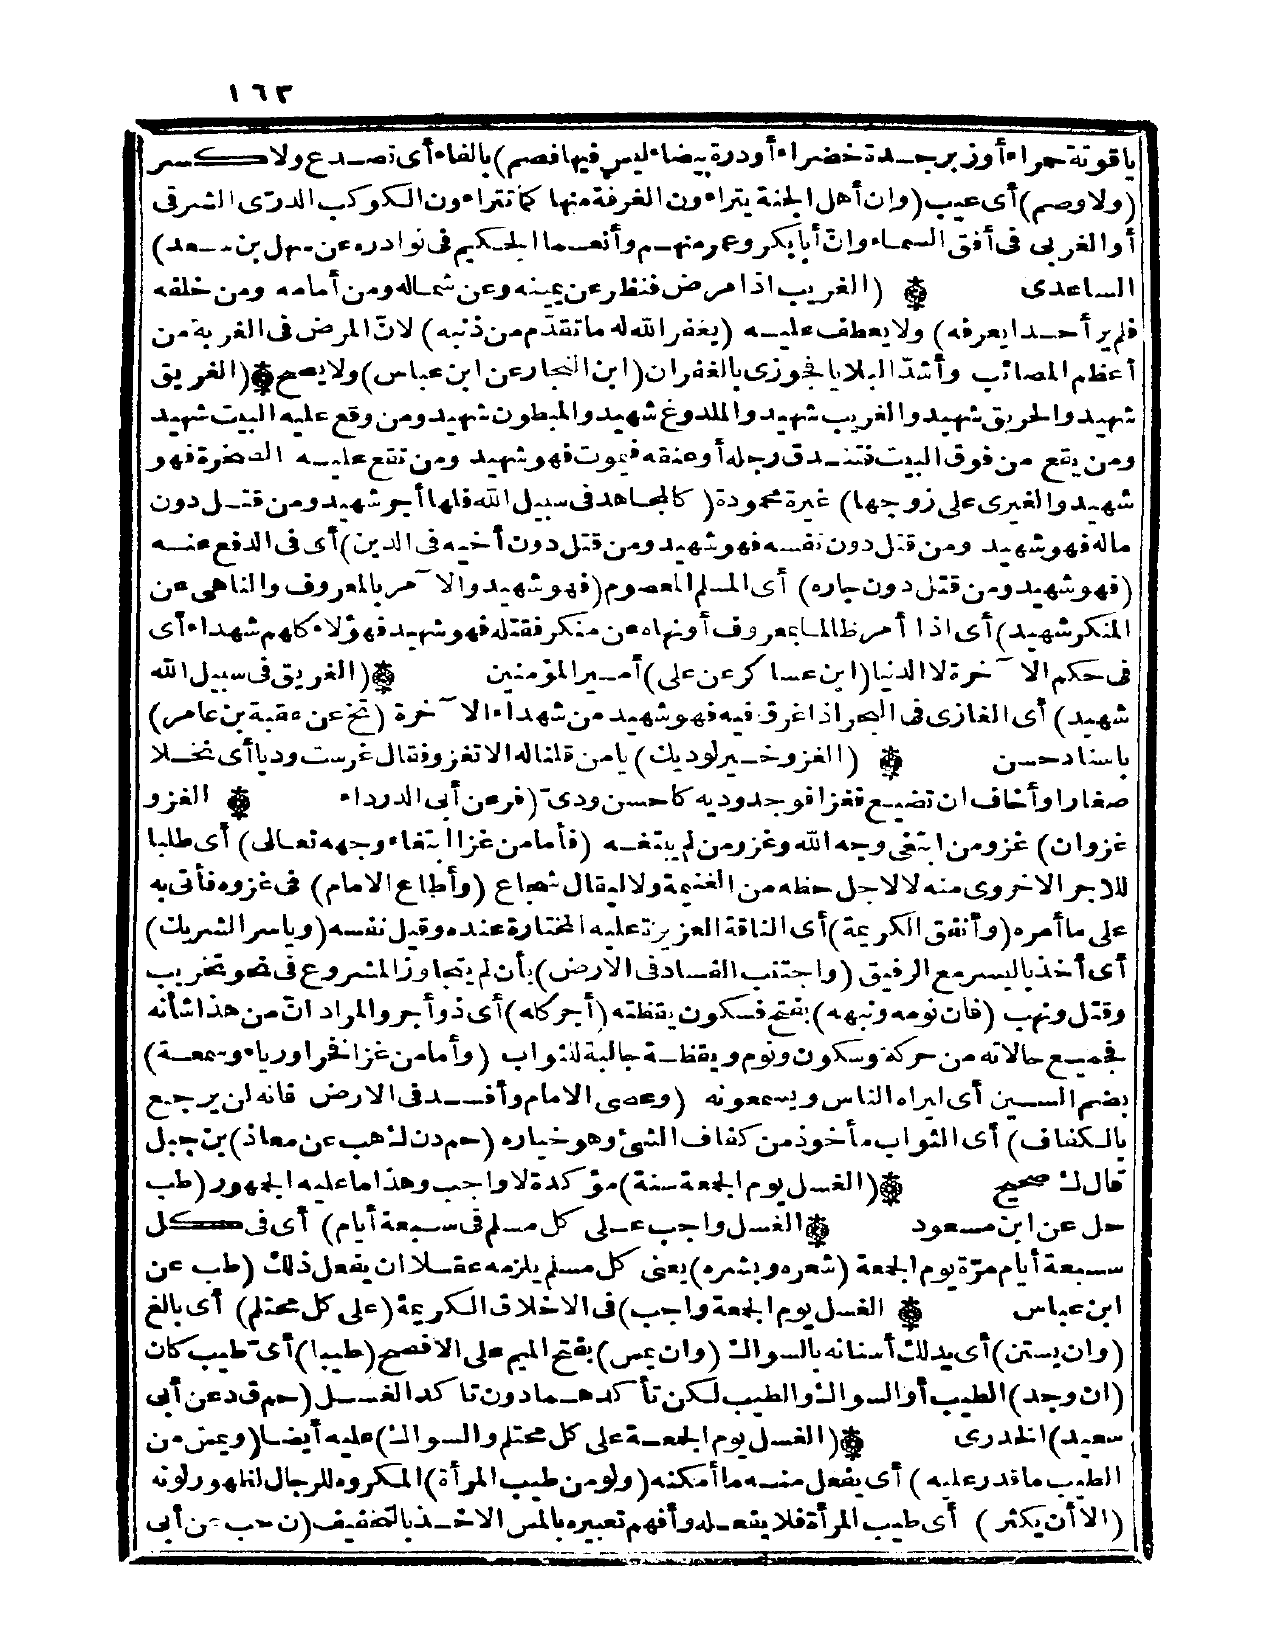 ١٦٣
ياقوتة حمراء أو زبرجدة خضراء أو درة بيضاء ليس فيها فصم) بالفاء أى تصدع ولا كسر
(ولا وصم) أى عيب (وان أهل الجنة يتراءون الغرفة منها كما تتراءون الكوكب الدرّى الشرقى
أو الغربى فى أفق السماء وانّ أبا بكر وعمر منهم وأنعما الحكيم فى نوادره عن سهل بن سعد)
الساعدى (الغريب اذا مرض فنظر عن يمينه وعن شماله ومن أمامه ومن خلفه
فلم ير أحدا يعرفه) ولا يعطف عليه (يغفر الله له ما تقدّم من ذنبه) لانّ المرض فى الغربة من
أعظم المصائب وأشدّ البلايا فجوزى بالغفران (ابن النجار عن ابن عباس) ولا يصح (الغريق
شهيد والحريق شهيد والغريب شهيد والملدوغ شهيد والمبطون شهيد ومن وقع عليه البيت شهيد
ومن يقع من فوق البيت فتندق رجله أو عنقه فيموت فهو شهيد ومن تقع عليه الصخرة فهو
شهيد والغيرى على زوجها) غيرة محمودة (كالمجاهد فى سبيل الله فلها أجر شهيد ومن قتل دون
ماله فهو شهيد ومن قتل دون نفسه فهو شهيد ومن قتل دون أخيه فى الدين) أى فى الدفع عنه
(فهو شهيد ومن قتل دون جاره) أى المسلم المعصوم (فهو شهيد والآمر بالمعروف والناهى عن
المنكر شهيد) أى اذا أمر ظالما بمعروف أو نهاه عن منكر فقتله فهو شهيد فهؤلاء كلهم شهداء أى
فى حكم الآخرة لا الدنيا (ابن عساكر عن على) أمير المؤمنين (الغريق فى سبيل الله
شهيد) أى الغازى فى البحر اذا غرق فيه فهو شهيد من شهداء الآخرة (تخ عن عقبة بن عامر)
باسناد حسن (الغزو خير لوديك) يا من قلنا له ألا تغزو فقال غرست وديا أى نخلا
صغارا وأخاف ان تضيع فغزا فوجد وديه كاحسن ودىّ (فر عن أبى الدرداء الغزو
غزوان) غزو من ابتغى وجه الله وغزو من لم يبتغه (فأما من غزا ابتغاء وجهه تعالى) أى طلبا
للاجر الاخروى منه لا لاجل حظه من الغنيمة ولا ليقال شجاع (وأطاع الامام) فى غزوه فأتى به
على ما أمره (وأنفق الكريمة) أى الناقة العزيزة عليه المختارة عنده وقيل نفسه (وياسر الشريك)
أى أخذ باليسر مع الرفيق (واجتنب الفساد فى الارض) بأن لم يتجاوز المشروع فى نحو تخريب
وقتل ونهب (فان نومه ونبهه) بفتح فسكون يقظته (أجر كله) أى ذو أجر والمراد انّ من هذا شأنه
فجميع حالاته من حركة وسكون ونوم ويقظة جالبة للثواب (وأما من غزا فخرا ورياء وسمعة)
بضم السين أى ليراه الناس ويسمعونه (وعصى الامام وأفسد فى الارض فانه لن يرجع
بالكفاف) أى الثواب مأخوذ من كفاف الشئ وهو خياره (حم د ن ك هب عن معاذ) بن جبل
قال ك صحيح (الغسل يوم الجمعة سنة) مؤكدة لا واجب وهذا ما عليه الجمهور (طب
حل عن ابن مسعود الغسل واجب على كل مسلم فى سبعة أيام) أى فى كل
سبعة أيام مرّة يوم الجمعة (شعره وبشره) يعنى كل مسلم يلزمه عقلا ان يفعل ذلك (طب عن
ابن عباس الغسل يوم الجمعة واجب) فى الاخلاق الكريمة (على كل محتلم) أى بالغ
(وان يستن) أى يدلك أسنانه بالسواك (وان يمس) بفتح الميم على الافصح (طيبا) أى طيب كان
(ان وجد) الطيب أو السواك والطيب لكن تأكدهما دون تأكد الغسل (حم ق د عن أبى
سعيد) الخدرى (الغسل يوم الجمعة على كل محتلم والسواك) عليه أيضا (ويمس من
الطيب ما قدر عليه) أى يفعل منه ما أمكنه (ولو من طيب المرأة) المكروه للرجال لظهور لونه
(الا أن يكثر) أى طيب المرأة فلا يفعله وأفهم تعبيره بالمس الاخذ بالتخفيف (ن حب عن أبى